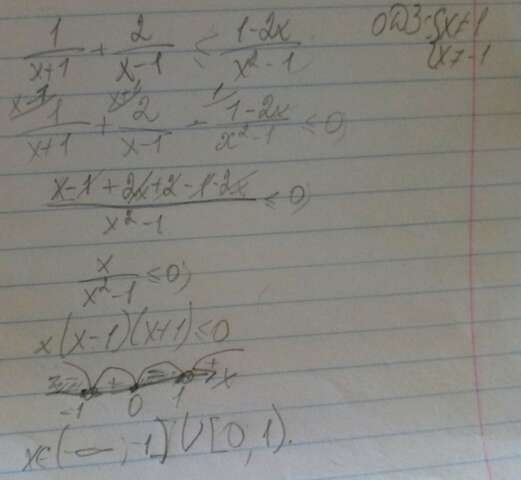 1/(x+1) + 2/(x-1) ≤ (1-2x)/(x²-1)
ОДЗ: {x≠1
{x≠-1
x-1 x+1 1
1/(x+1) + 2/(x-1) - (1-2x)/(x²-1) ≤ 0;
(x-1+2x+2-1-2x)/(x²-1) ≤ 0;
x/(x²-1) ≤ 0;
x(x-1)(x+1) ≤ 0
- + - + x
-1 0 1
x∈(-∞; -1] ∪ [0, 1).